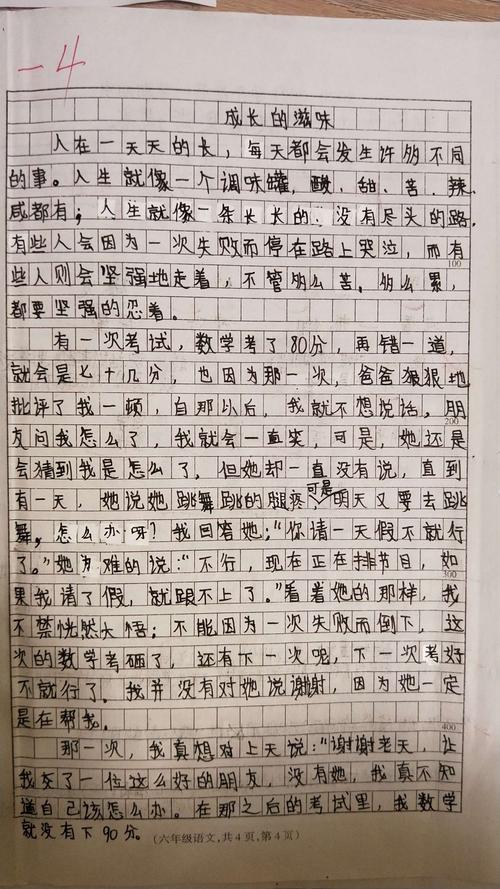 -4
成长的滋味
人在一天天的长，每天都会发生许多不同
的事。人生就像一个调味罐，酸、甜、苦、辣、
咸都有；人生就像一条长长的、没有尽头的路，
有些人会因为一次失败而停在路上哭泣，而有
100
些人则会坚强地走着，不管多么苦。多么累，
都要坚强的忍着。
有一次考试，数学考了80分，再错一道，
就会是七十几分，也因为那一次，爸爸狠狠地
批评了我一顿，自那以后，我就不想说话，朋
200
友问我怎么了，我就会一直笑，可是，她还是
会猜到我是怎么了，但她却一直没有说，直到
有一天，她说她跳舞跳的腿疼，可是明天又要去跳
舞，怎么办呀？我回答她；“你请一天假不就行
了。”她为难的说：“不行，现在正在排节目，如
300
果我请了假，就跟不上了。”看着她的那样，我
不禁恍然大悟；不能因为一次失败而倒下，这
次的数学考砸了，还有下一次呢，下一次考好
不就行了。我并没有对她说谢谢，因为她一定
是在帮我。
400
那一次，我真想对上天说：“谢谢老天，让
我交了一位这么好的朋友，没有她，我真不知
道自己该怎么办。在那之后的考试里，我数学
就没有下90分。
(六年级语文，共4页，第4页)